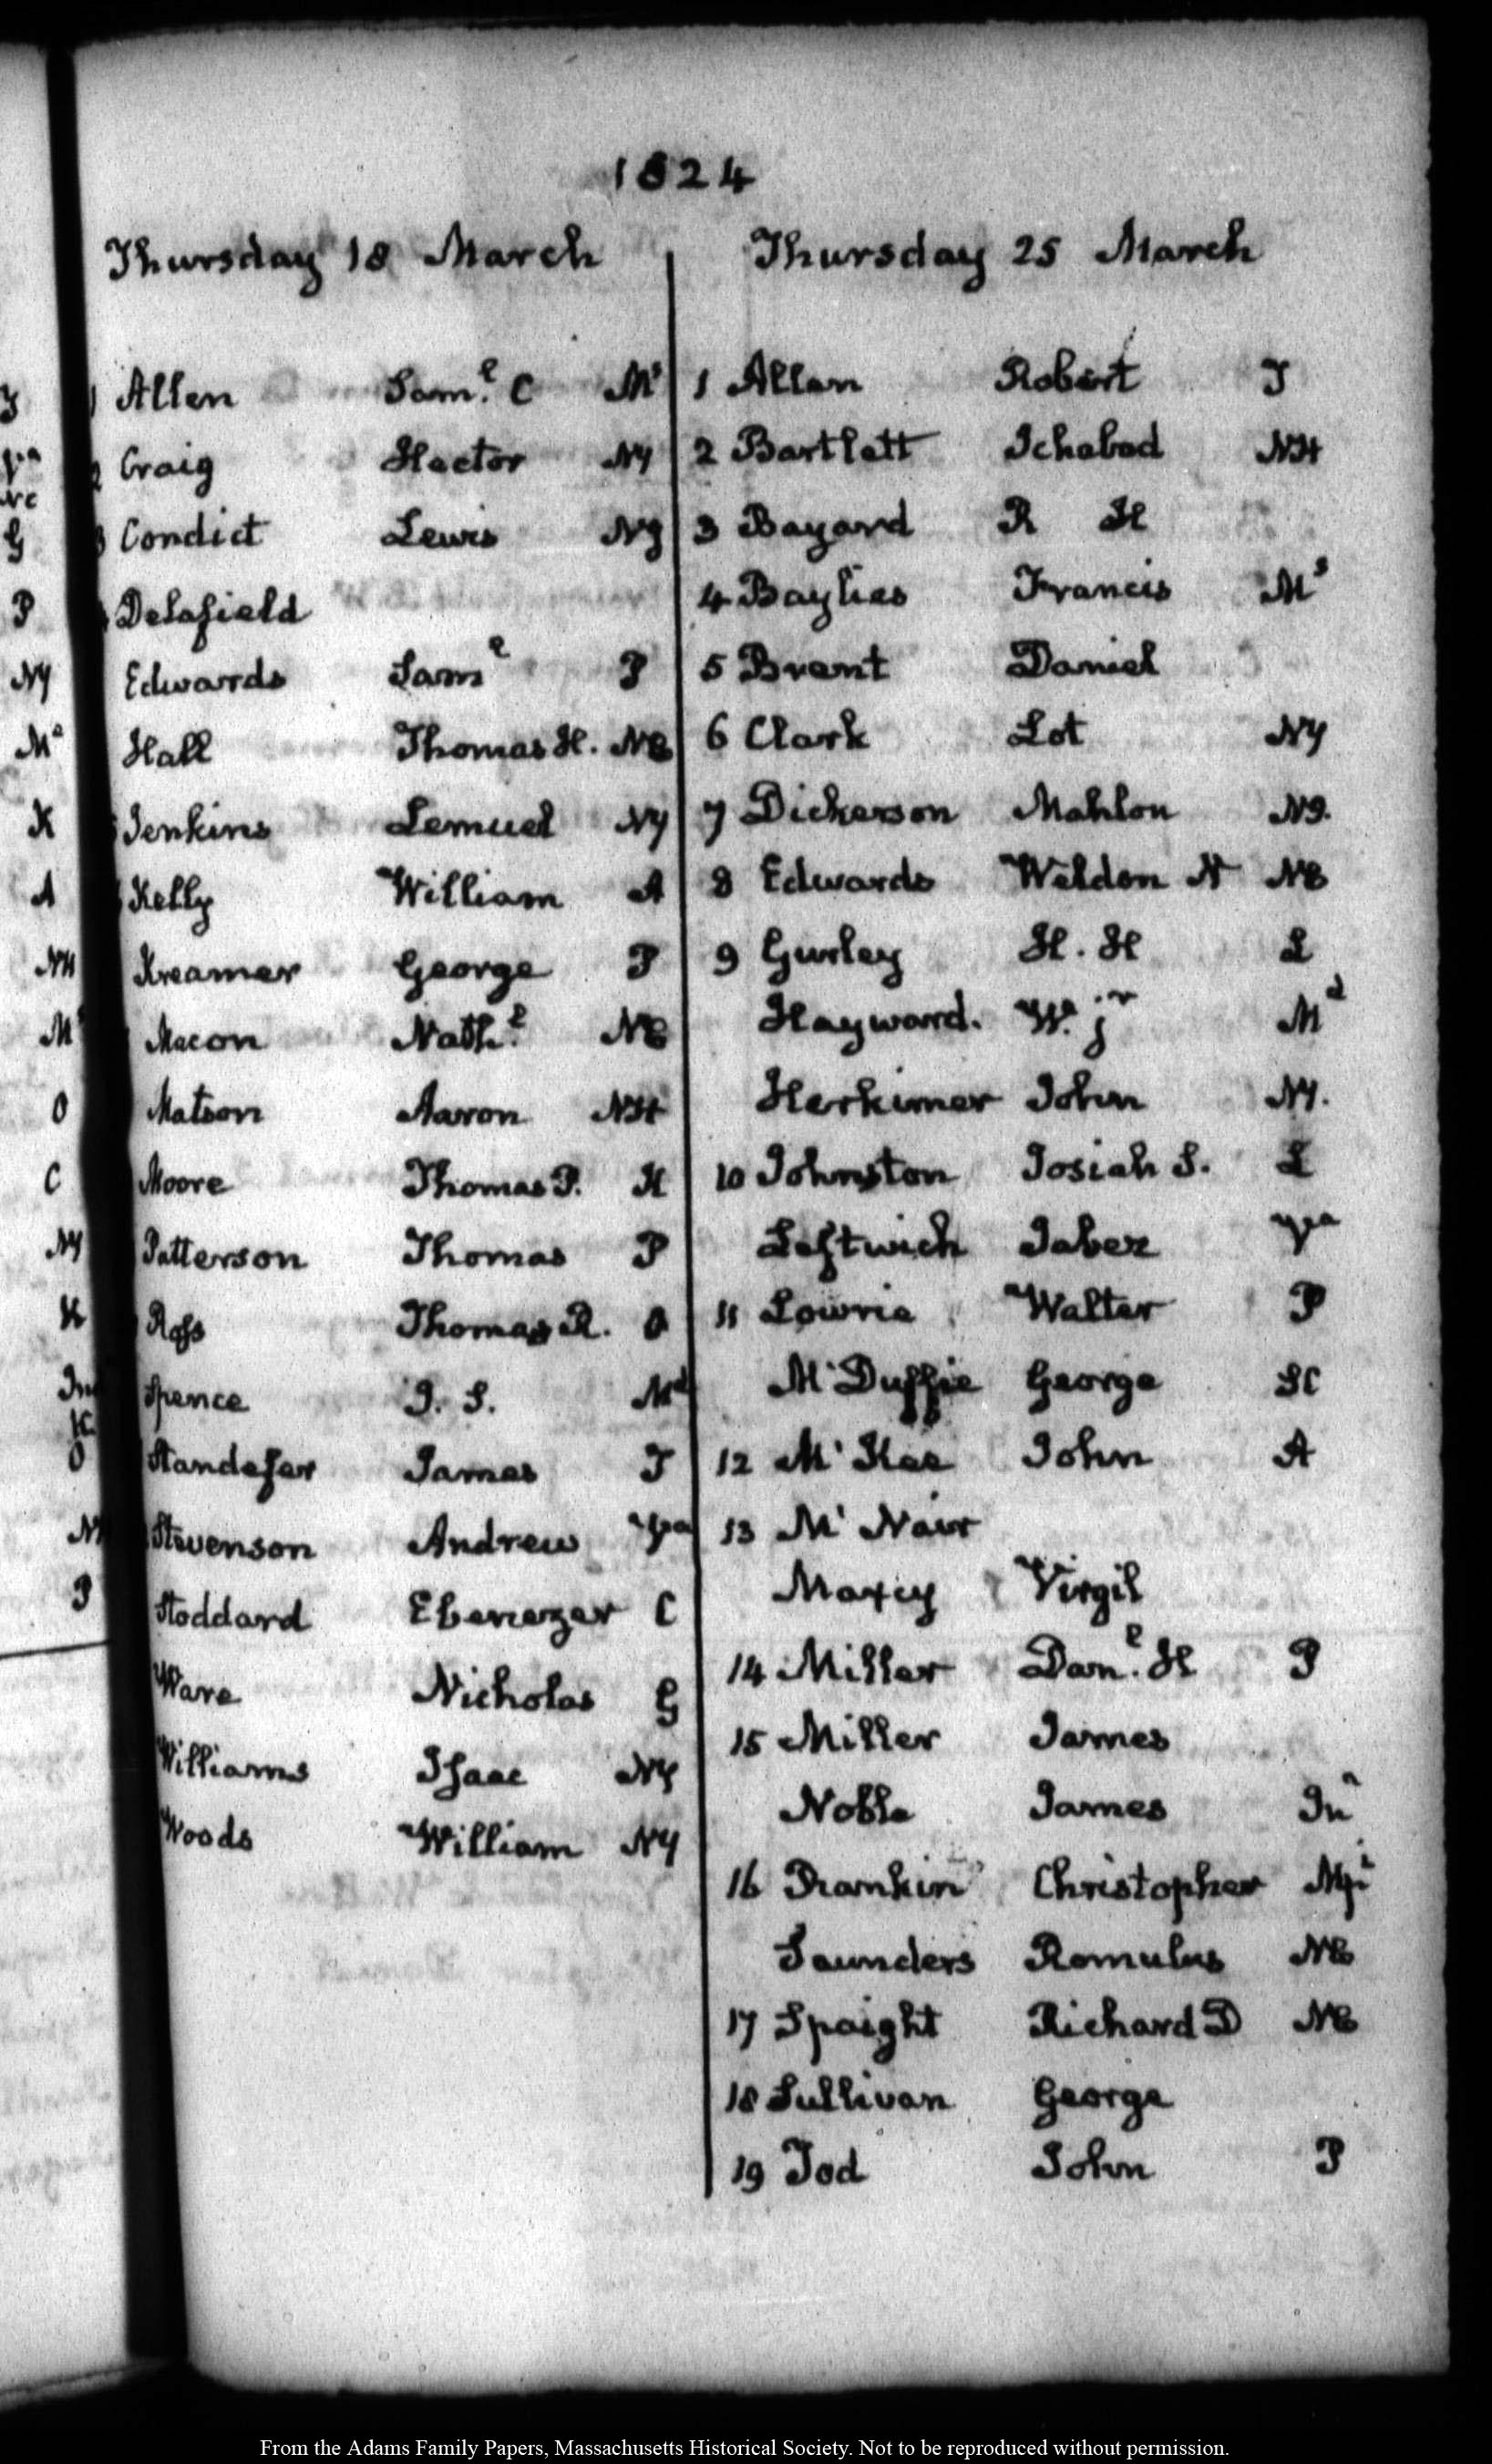 1824
Thursday 18 March
1 Allen Sam.l C Ms
2 Craig Hector NY
3 Condict Lewis NJ
Delafield
Edwards Saml P
Hall Thomas H. NC
Jenkins Lemuel NY
Kelly William A
Kreamer George P
Macon Nath.l NC
Matson Aaron NH
Moore Thomas P. K
Patterson Thomas P
Ross Thomas R. O
Spence J. S. Md
Standefer James T
Stevenson Andrew Va
Stoddard Ebenezer C
Ware Nicholas G
Williams Isaac NY
Woods William NY
Thursday 25 March
1 Allan Robert T
2 Bartlett Ichabod NH
3 Bayard R H
4 Baylies Francis Ms
5 Brent Daniel
6 Clark Lot NY
7 Dickerson Mahlon NJ.
8 Edwards Weldon N NC
9 Gurley H. H L
Hayward. W. jr Md
Herkimer John NY.
10 Johnston Josiah S. L
Leftwich Jabez Va
11 Lowrie Walter P
Mc Duffie George SC
12 Mc Kee John A
13 Mc Nair
Maxcy Virgil
14 Miller Dan.l H P
15 Miller James
Noble James Ina
16 Rankin Christopher Mpi
Saunders Romulus NC
17 Spaight Richard D NC
18 Sullivan George
19 Tod John P
From the Adams Family Papers, Massachusetts Historical Society. Not to be reproduced without permission.